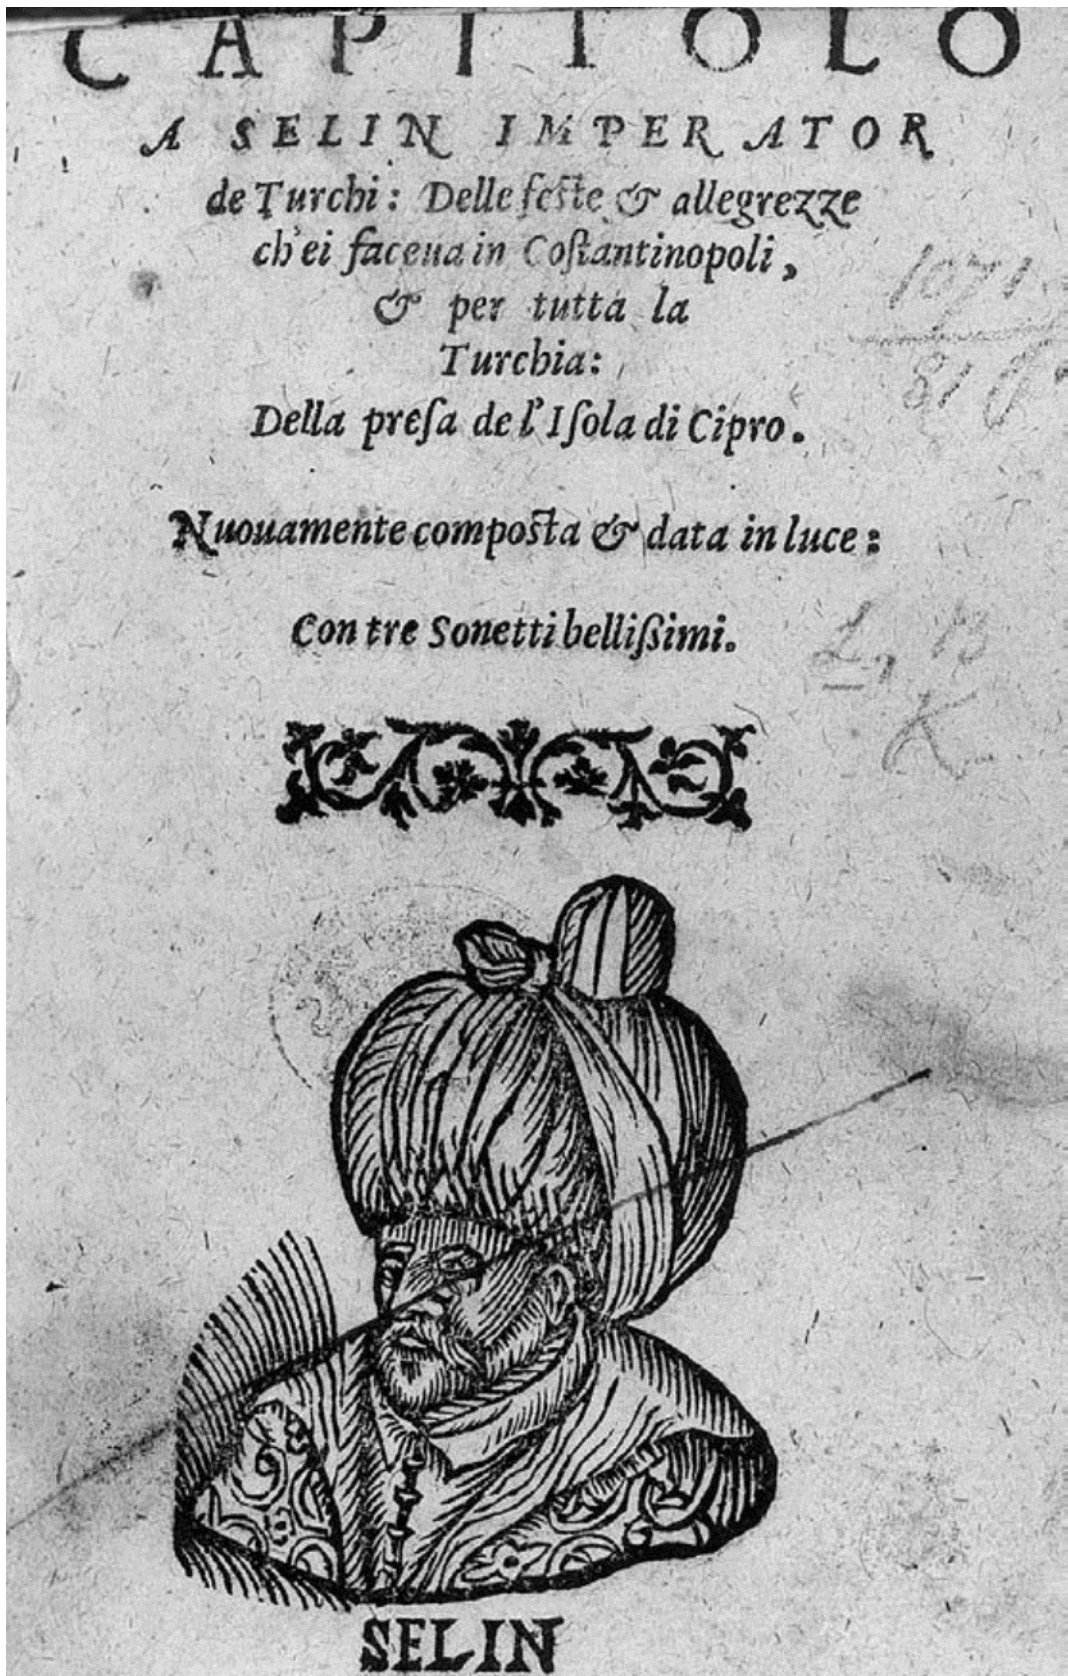 CAPITOLO
A SELIN IMPERATOR
de Turchi: Delle feste & allegrezze
ch'ei faceua in Coſtantinopoli,
& per tutta la
Turchia:
Della preſa de l'Iſola di Cipro.
Nuouamente compoſta & data in luce:
Con tre Sonetti belliſsimi.
SELIN